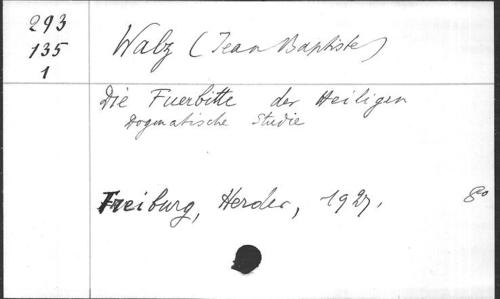 293
135
1
Walz (Jean Baptiste)
Die Fuerbitte der Heiligen
Dogmatische Studie
Freiburg, Herder, 1927. 8º